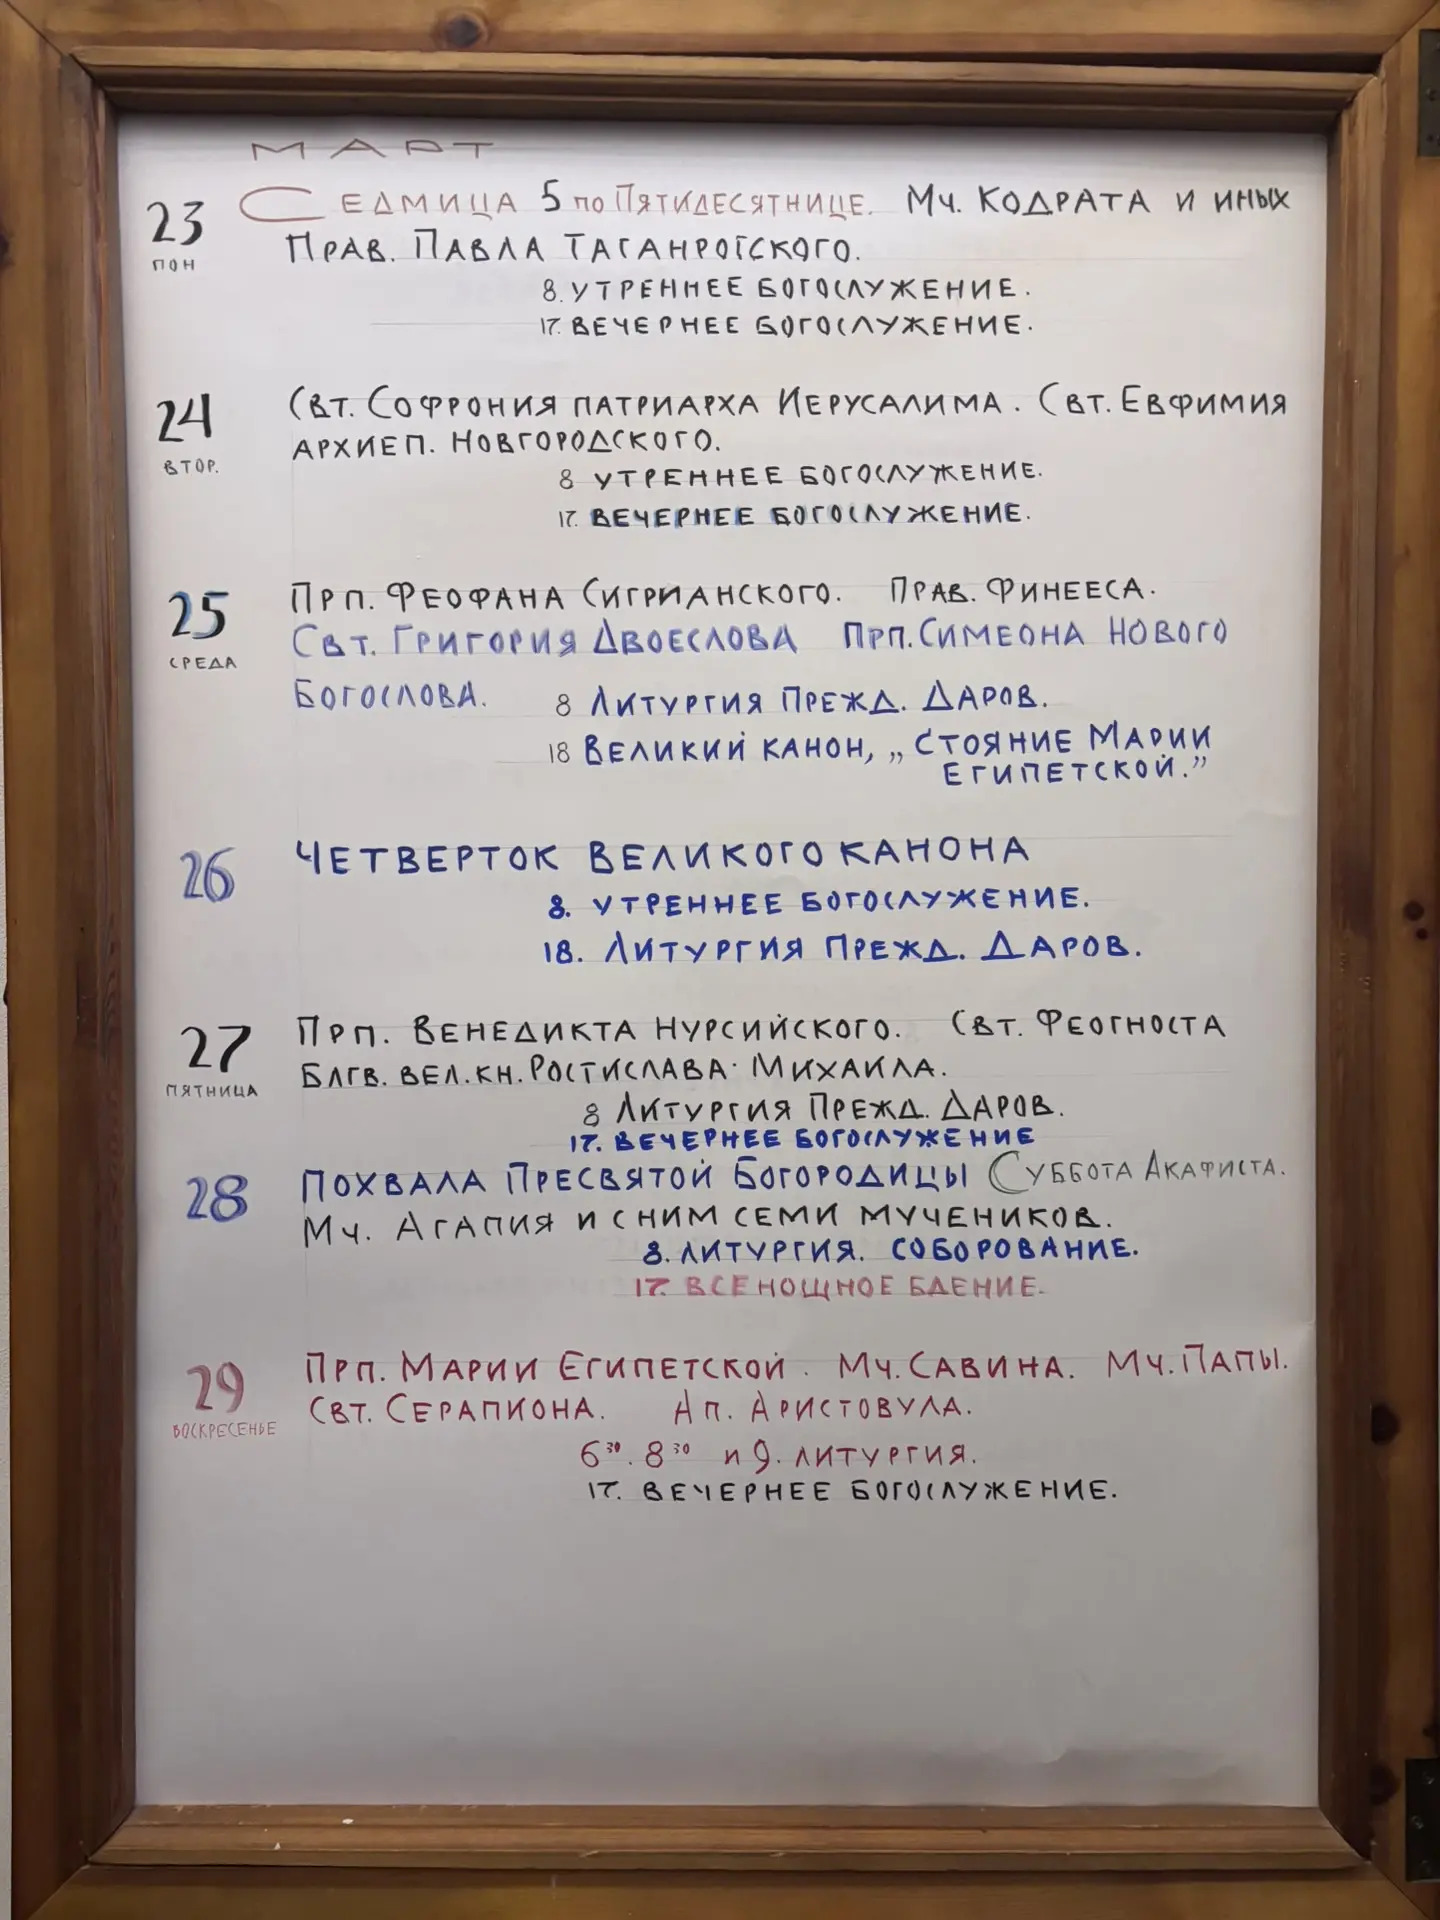 МАРТ
23 СЕДМИЦА 5 ПО ПЯТИДЕСЯТНИЦЕ. МЧ. КОДРАТА И ИНЫХ
ПОН ПРАВ. ПАВЛА ТАГАНРОГСКОГО.
8. УТРЕННЕЕ БОГОСЛУЖЕНИЕ.
17. ВЕЧЕРНЕЕ БОГОСЛУЖЕНИЕ.
24 СВТ. СОФРОНИЯ ПАТРИАРХА ИЕРУСАЛИМА. СВТ. ЕВФИМИЯ
ВТОР. АРХИЕП. НОВГОРОДСКОГО.
8 УТРЕННЕЕ БОГОСЛУЖЕНИЕ.
17. ВЕЧЕРНЕЕ БОГОСЛУЖЕНИЕ.
25 ПРП. ФЕОФАНА СИГРИАНСКОГО. ПРАВ. ФИНЕЕСА.
СРЕДА СВТ. ГРИГОРИЯ ДВОЕСЛОВА ПРП. СИМЕОНА НОВОГО
БОГОСЛОВА. 8 ЛИТУРГИЯ ПРЕЖД. ДАРОВ.
18 ВЕЛИКИЙ КАНОН, „СТОЯНИЕ МАРИИ
ЕГИПЕТСКОЙ.”
26 ЧЕТВЕРТОК ВЕЛИКОГО КАНОНА
8. УТРЕННЕЕ БОГОСЛУЖЕНИЕ.
18. ЛИТУРГИЯ ПРЕЖД. ДАРОВ.
27 ПРП. ВЕНЕДИКТА НУРСИЙСКОГО. СВТ. ФЕОГНОСТА
ПЯТНИЦА БЛГВ. ВЕЛ. КН. РОСТИСЛАВА-МИХАИЛА.
8 ЛИТУРГИЯ ПРЕЖД. ДАРОВ.
17. ВЕЧЕРНЕЕ БОГОСЛУЖЕНИЕ
28 ПОХВАЛА ПРЕСВЯТОЙ БОГОРОДИЦЫ СУББОТА АКАФИСТА.
МЧ. АГАПИЯ И С НИМ СЕМИ МУЧЕНИКОВ.
8. ЛИТУРГИЯ. СОБОРОВАНИЕ.
17. ВСЕНОЩНОЕ БДЕНИЕ.
29 ПРП. МАРИИ ЕГИПЕТСКОЙ. МЧ. САВИНА. МЧ. ПАПЫ.
ВОСКРЕСЕНЬЕ СВТ. СЕРАПИОНА. АП. АРИСТОВУЛА.
6³⁰. 8³⁰ И 9. ЛИТУРГИЯ.
17. ВЕЧЕРНЕЕ БОГОСЛУЖЕНИЕ.